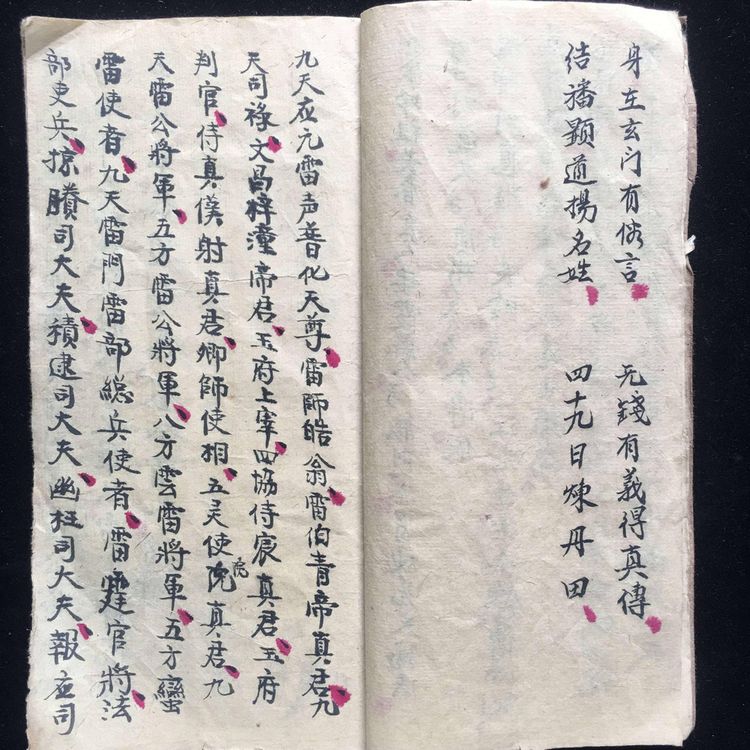 身在玄门有俗言 无錢有義得真傳
结播顕道揚名姓 四十九日煉丹田
九天应元雷声普化天尊雷师皓翁雷伯青帝真君九
天司禄文昌梓潼帝君玉府上宰四協侍宸真君玉府
判官侍真僕射真君卿師使相五灵使院院真君九
天雷公將軍五方雷公將軍八方雲雷將軍五方蠻
雷使者九天雷門雷部總兵使者雷霆官將法
部吏兵掠賸司大夫積逮司大夫幽枉司大夫報应司